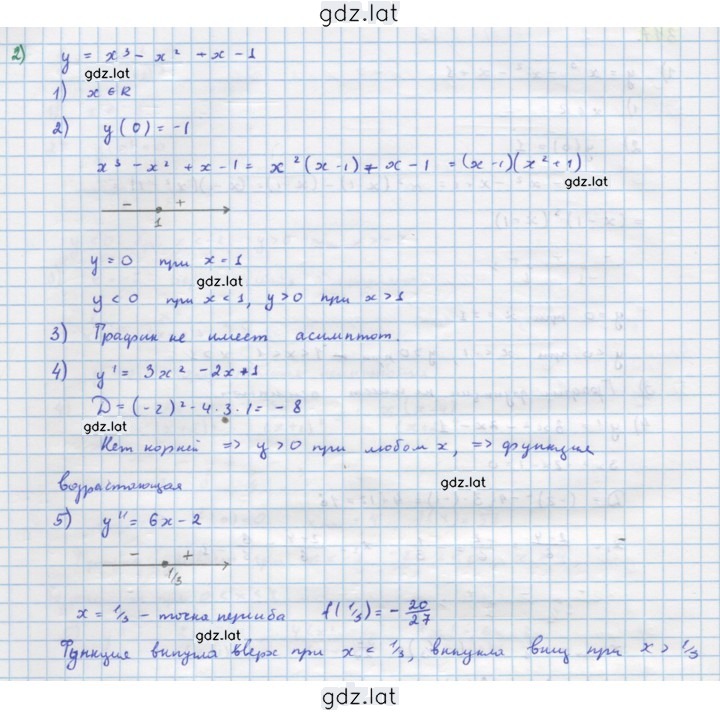 gdz.lat
2) y = x³ - x² + x - 1
gdz.lat
1) x ∈ R
2) y(0) = -1
x³ - x² + x - 1 = x²(x-1) + x - 1 = (x-1)(x²+1)
gdz.lat
- +
1
y = 0 при x = 1
gdz.lat
y < 0 при x < 1, y > 0 при x > 1
3) График не имеет асимптот.
4) y' = 3x² - 2x + 1
D = (-2)² - 4·3·1 = -8
gdz.lat
Нет корней => y > 0 при любом x, => функция
gdz.lat
возрастающая
5) y'' = 6x - 2
- +
1/3
x = 1/3 - точка перегиба f(1/3) = -20/27
gdz.lat
Функция выпукла вверх при x < 1/3, выпукла вниз при x > 1/3
gdz.lat